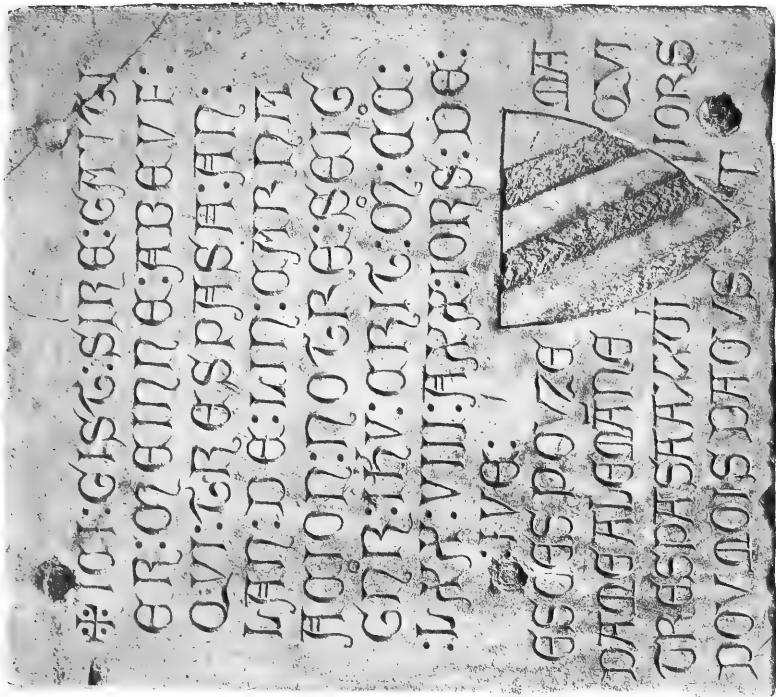 ✠ICI:GIST:SIRE:GAVTI
ER:MEINNE:ABEVF:
QVI:TRESPASA:AN:
LAN:DE:LIN:CARNA
ACION:NOTRE:SEIG
GNR:IHV:CRIT:M:CC:
:LXX:VIII:A XX:IORS:DE:
:IVE:
ESCESPOVZE MA
DAME ALEMANE QVI
TRESPASA IORS
DOV MOIS DAOVST